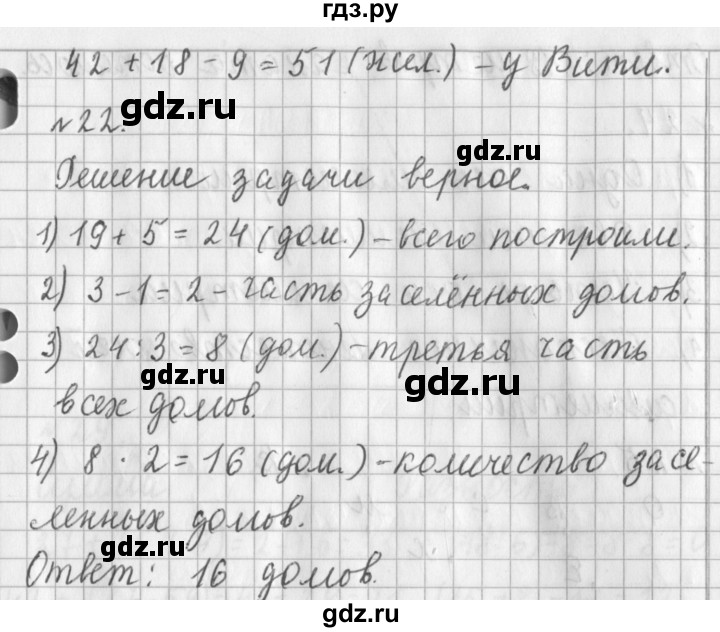 гдз.ру
42 + 18 - 9 = 51 (жел.) - у Вити.
gdz.ru
gdz.ru
№22.
Решение задачи верное.
1) 19 + 5 = 24 (дом.) - всего построили.
2) 3 - 1 = 2 - часть заселённых домов.
3) 24 : 3 = 8 (дом.) - третья часть
gdz.ru
gdz.ru
всех домов.
4) 8 · 2 = 16 (дом.) - количество засе-
ленных домов.
gdz.ru
Ответ: 16 домов.
gdz.ru
gdz.ru